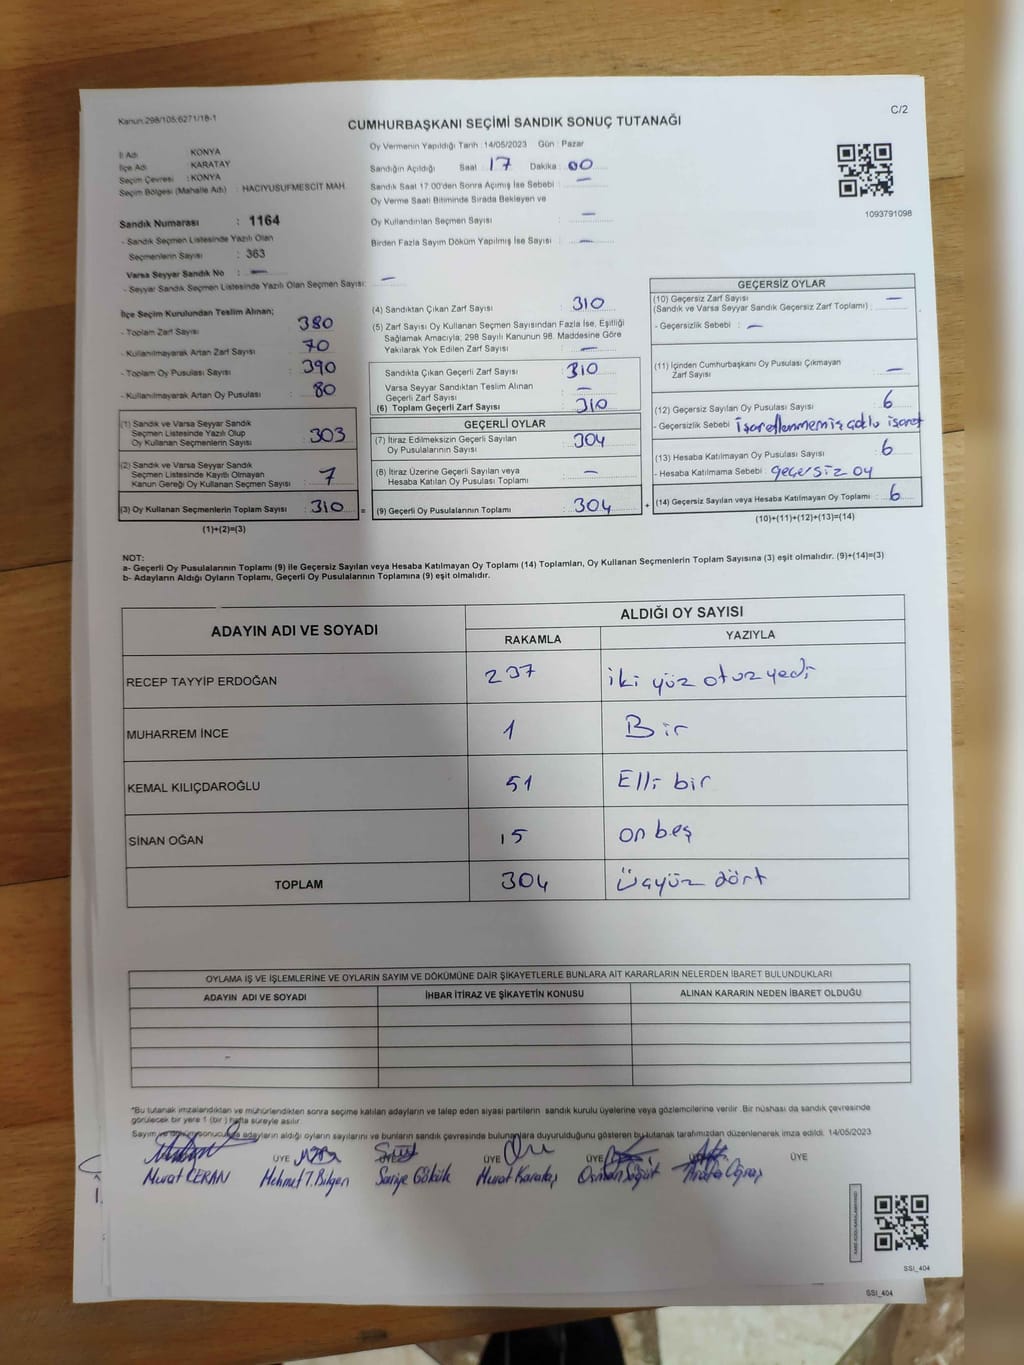 Kanun:298/105;6271/18-1
C/2
CUMHURBAŞKANI SEÇİMİ SANDIK SONUÇ TUTANAĞI
İl Adı : KONYA
İlçe Adı : KARATAY
Seçim Çevresi : KONYA
Seçim Bölgesi (Mahalle Adı) : HACIYUSUFMESCİT MAH.
Sandık Numarası : 1164
- Sandık Seçmen Listesinde Yazılı Olan
Seçmenlerin Sayısı : 363
Varsa Seyyar Sandık No : —
- Seyyar Sandık Seçmen Listesinde Yazılı Olan Seçmen Sayısı: —
Oy Vermenin Yapıldığı Tarih : 14/05/2023 Gün : Pazar
Sandığın Açıldığı Saat : 17 Dakika : 00
Sandık Saat 17.00'den Sonra Açımış İse Sebebi : —
Oy Verme Saati Bitiminde Sırada Bekleyen ve
Oy Kullandırılan Seçmen Sayısı : —
Birden Fazla Sayım Döküm Yapılmış İse Sayısı : —
1093791098
İlçe Seçim Kurulundan Teslim Alınan;
- Toplam Zarf Sayısı : 380
- Kullanılmayarak Artan Zarf Sayısı : 70
- Toplam Oy Pusulası Sayısı : 390
- Kullanılmayarak Artan Oy Pusulası : 80
(1) Sandık ve Varsa Seyyar Sandık
Seçmen Listesinde Yazılı Olup
Oy Kullanan Seçmenlerin Sayısı : 303
(2) Sandık ve Varsa Seyyar Sandık
Seçmen Listesinde Kayıtlı Olmayan
Kanun Gereği Oy Kullanan Seçmen Sayısı : 7
(3) Oy Kullanan Seçmenlerin Toplam Sayısı : 310
(1)+(2)=(3)
(4) Sandıktan Çıkan Zarf Sayısı : 310
(5) Zarf Sayısı Oy Kullanan Seçmen Sayısından Fazla İse, Eşitliği
Sağlamak Amacıyla; 298 Sayılı Kanunun 98. Maddesine Göre
Yakılarak Yok Edilen Zarf Sayısı : —
Sandıkta Çıkan Geçerli Zarf Sayısı : 310
Varsa Seyyar Sandıktan Teslim Alınan
Geçerli Zarf Sayısı : —
(6) Toplam Geçerli Zarf Sayısı : 310
GEÇERLİ OYLAR
(7) İtiraz Edilmeksizin Geçerli Sayılan
Oy Pusulalarının Toplamı : 304
(8) İtiraz Üzerine Geçerli Sayılan veya
Hesaba Katılan Oy Pusulası Toplamı : —
(9) Geçerli Oy Pusulalarının Toplamı : 304
GEÇERSİZ OYLAR
(10) Geçersiz Zarf Sayısı
(Sandık ve Varsa Seyyar Sandık Geçersiz Zarf Toplamı) : —
- Geçersizlik Sebebi : —
(11) İçinden Cumhurbaşkanı Oy Pusulası Çıkmayan
Zarf Sayısı : —
(12) Geçersiz Sayılan Oy Pusulası Sayısı : 6
- Geçersizlik Sebebi : işaretlenmemiş çoklu işaret
(13) Hesaba Katılmayan Oy Pusulası Sayısı : 6
- Hesaba Katılmama Sebebi : geçersiz oy
(14) Geçersiz Sayılan veya Hesaba Katılmayan Oy Toplamı : 6
(10)+(11)+(12)+(13)=(14)
NOT:
a- Geçerli Oy Pusulalarının Toplamı (9) ile Geçersiz Sayılan veya Hesaba Katılmayan Oy Toplamı (14) Toplamları, Oy Kullanan Seçmenlerin Toplam Sayısına (3) eşit olmalıdır. (9)+(14)=(3)
b- Adayların Aldığı Oyların Toplamı, Geçerli Oy Pusulalarının Toplamına (9) eşit olmalıdır.
ADAYIN ADI VE SOYADI
ALDIĞI OY SAYISI
RAKAMLA YAZIYLA
RECEP TAYYİP ERDOĞAN 237 iki yüz otuz yedi
MUHARREM İNCE 1 Bir
KEMAL KILIÇDAROĞLU 51 Elli bir
SİNAN OĞAN 15 on beş
TOPLAM 304 üçyüz dört
OYLAMA İŞ VE İŞLEMLERİNE VE OYLARIN SAYIM VE DÖKÜMÜNE DAİR ŞİKAYETLERLE BUNLARA AİT KARARLARIN NELERDEN İBARET BULUNDUKLARI
ADAYIN ADI VE SOYADI İHBAR İTİRAZ VE ŞİKAYETİN KONUSU ALINAN KARARIN NEDEN İBARET OLDUĞU
*Bu tutanak imzalandıktan ve mühürlendikten sonra seçime katılan adayların ve talep eden siyasi partilerin sandık kurulu üyelerine veya gözlemcilerine verilir. Bir nüshası da sandık çevresinde
görülecek bir yere 1 (bir) hafta süreyle asılır.
Sayım ve döküm sonucunda adayların aldığı oyların sayılarını ve bunların sandık çevresinde bulunanlara duyurulduğunu gösteren bu tutanak tarafımızdan düzenlenerek imza edildi. 14/05/2023
ÜYE ÜYE ÜYE ÜYE
Murat CERAN Mehmet T. Bilgen Saniye Gökük Murat Karataş Osman Söğüt
SSI_404
SSI_404